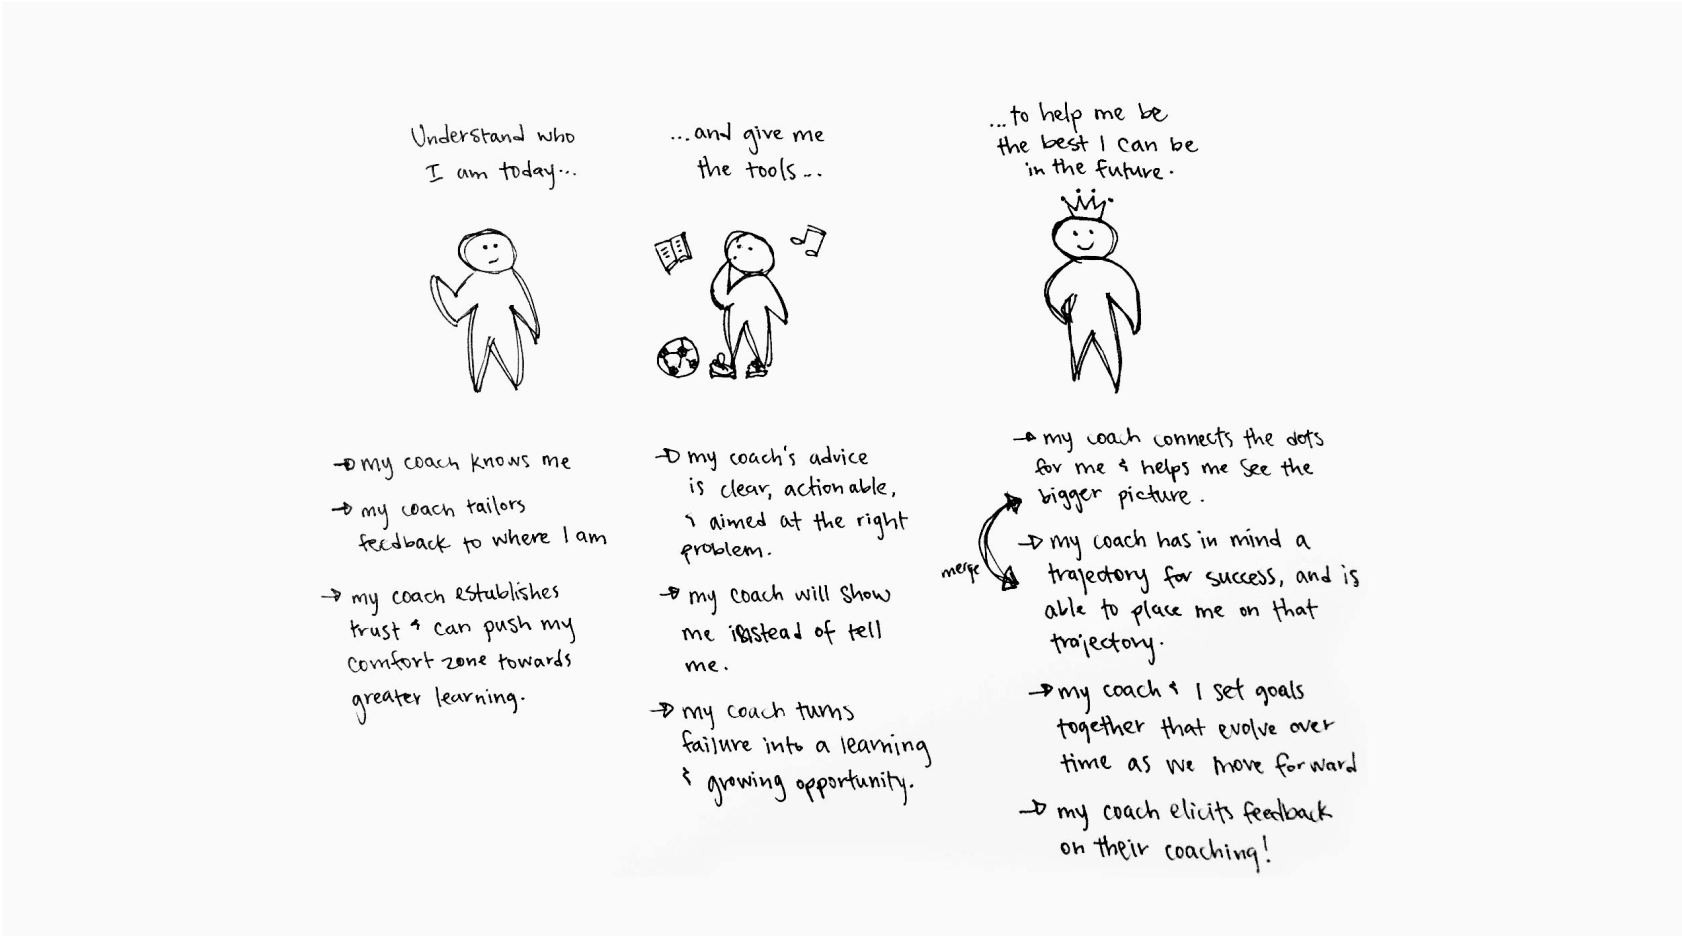 Understand who
I am today...
→ my coach knows me
→ my coach tailors
feedback to where I am
→ my coach establishes
trust & can push my
comfort zone towards
greater learning.
...and give me
the tools...
→ my coach's advice
is clear, actionable,
& aimed at the right
problem.
→ my coach will show
me instead of tell
me.
→ my coach turns
failure into a learning
& growing opportunity.
...to help me be
the best I can be
in the future.
→ my coach connects the dots
for me & helps me see the
bigger picture.
merge
→ my coach has in mind a
trajectory for success, and is
able to place me on that
trajectory.
→ my coach & I set goals
together that evolve over
time as we move forward
→ my coach elicits feedback
on their coaching!